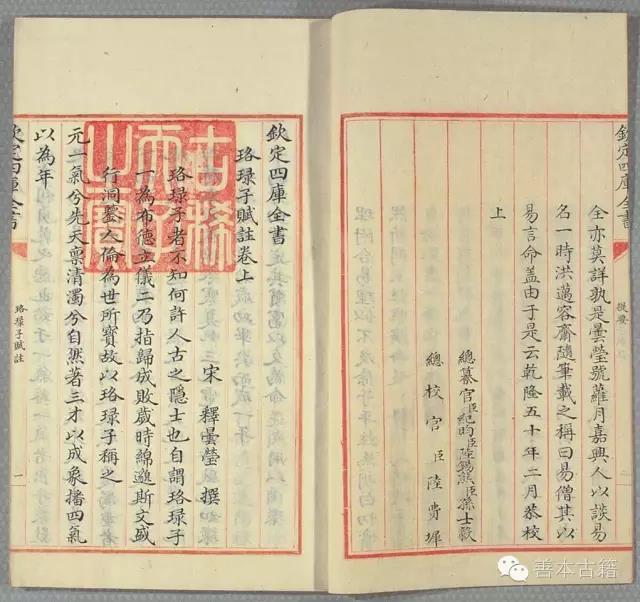 欽定四庫全書
提要
全亦莫詳孰是曇瑩號蘿月嘉興人以談易
名一時洪邁容齋隨筆載之稱曰易僧其以
易言命盖由于是云乾隆五十年二月恭校
上
總纂官臣紀昀臣陸錫熊臣孫士毅
總校官臣陸費墀
欽定四庫全書
珞琭子賦註卷上
宋 釋曇瑩 撰
珞琭子者不知何許人古之隠士也自謂珞琭子
一為布德立儀二乃指歸成敗歲時綿邈斯文盛
行洞鍳人倫為世所寳故以珞琭子稱之
元一氣兮先天禀清濁兮自然著三才以成象播四氣
以為年
欽定四庫全書
珞琭子賦註
一
古稀
天子
之寶
善本古籍